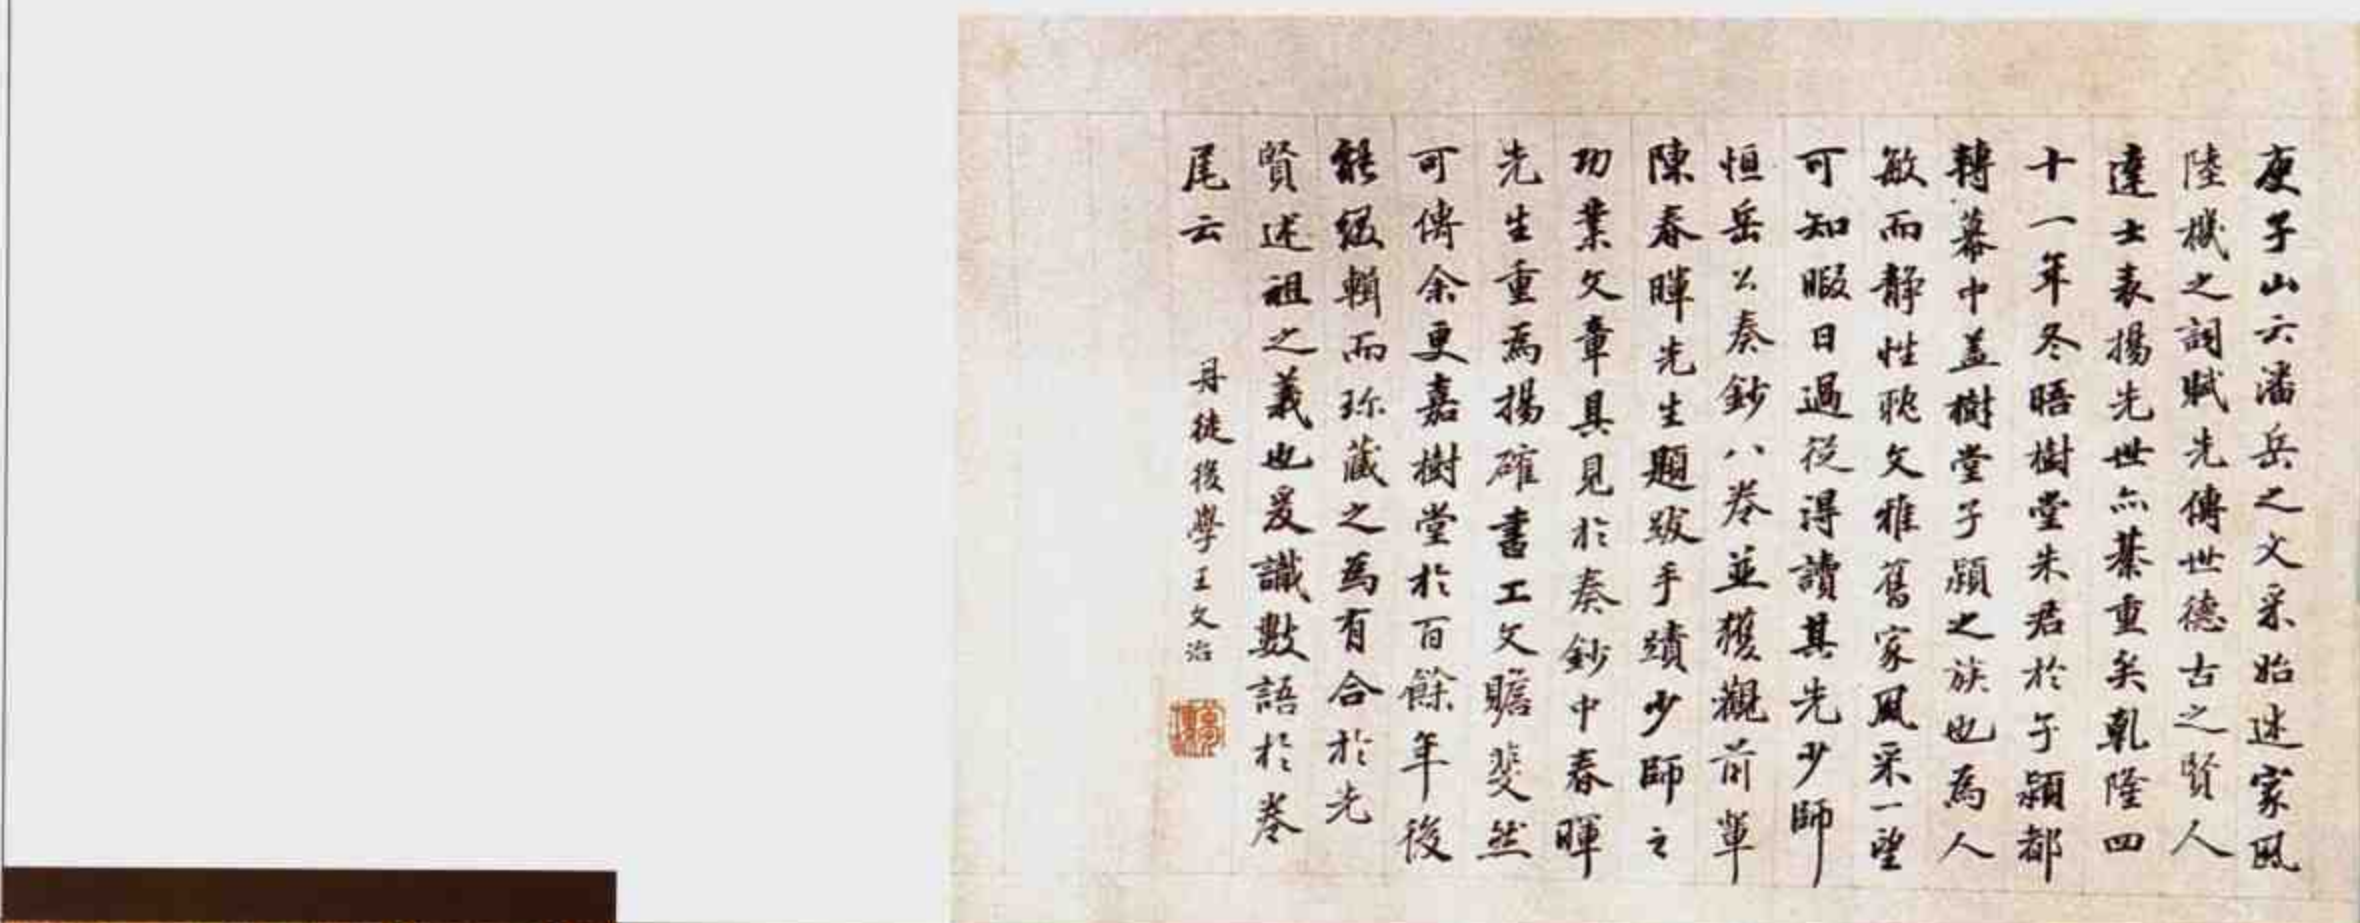 庾子山云潘岳之文采始述家風
陸機之詞賦先傳世德古之賢人
達士表揚先世亦綦重矣乾隆四
十一年冬晤樹堂朱君於子潁都
轉幕中蓋樹堂子潁之族也為人
敏而靜性耽文雅舊家風采一望
可知暇日過從得讀其先少師
恒岳公奏鈔八卷並獲觀前輩
陳春暉先生題跋手蹟少師之
功業文章具見於奏鈔中春暉
先生重為揚確書工文贍斐然
可傳余更嘉樹堂於百餘年後
能綴輯而珎藏之為有合於先
賢述祖之義也爰識數語於卷
尾云
丹徒後學王文治